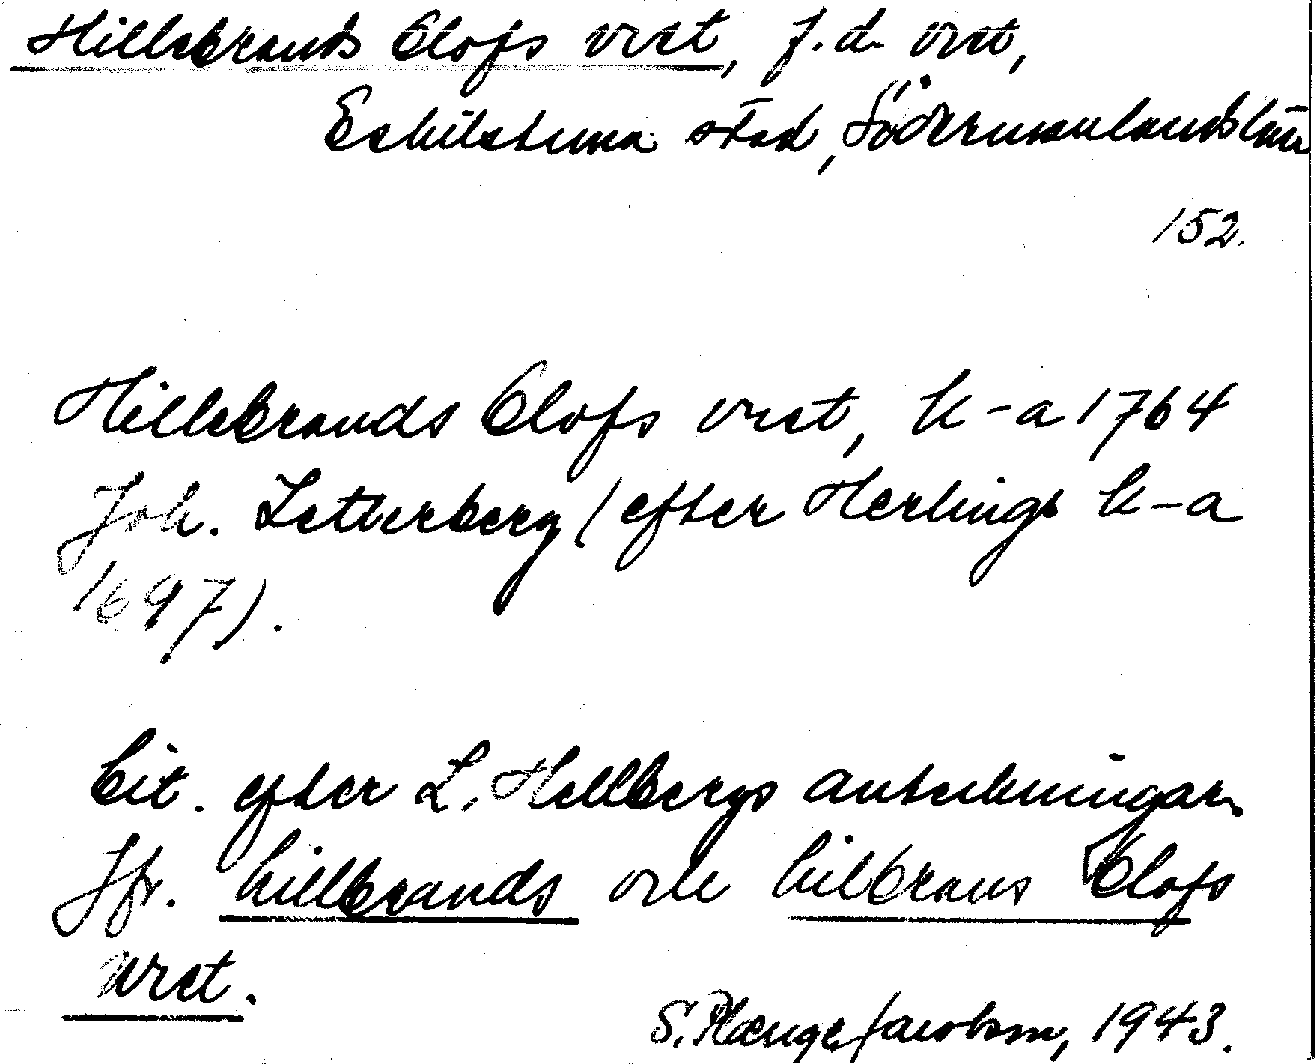 Hillebrands Olofs vret, f.d. vret,
Eskilstuna stad, Södermanlands län
152.
Hillebrands Olofs vret, k-a 1764
Joh. Zetterberg (efter Herlings k-a
1697).
Cit. efter L. Hellbergs anteckningar.
Jfr. hillbrands och hilbrans Olofs
wret.
S. Plænge Jacobson, 1943.